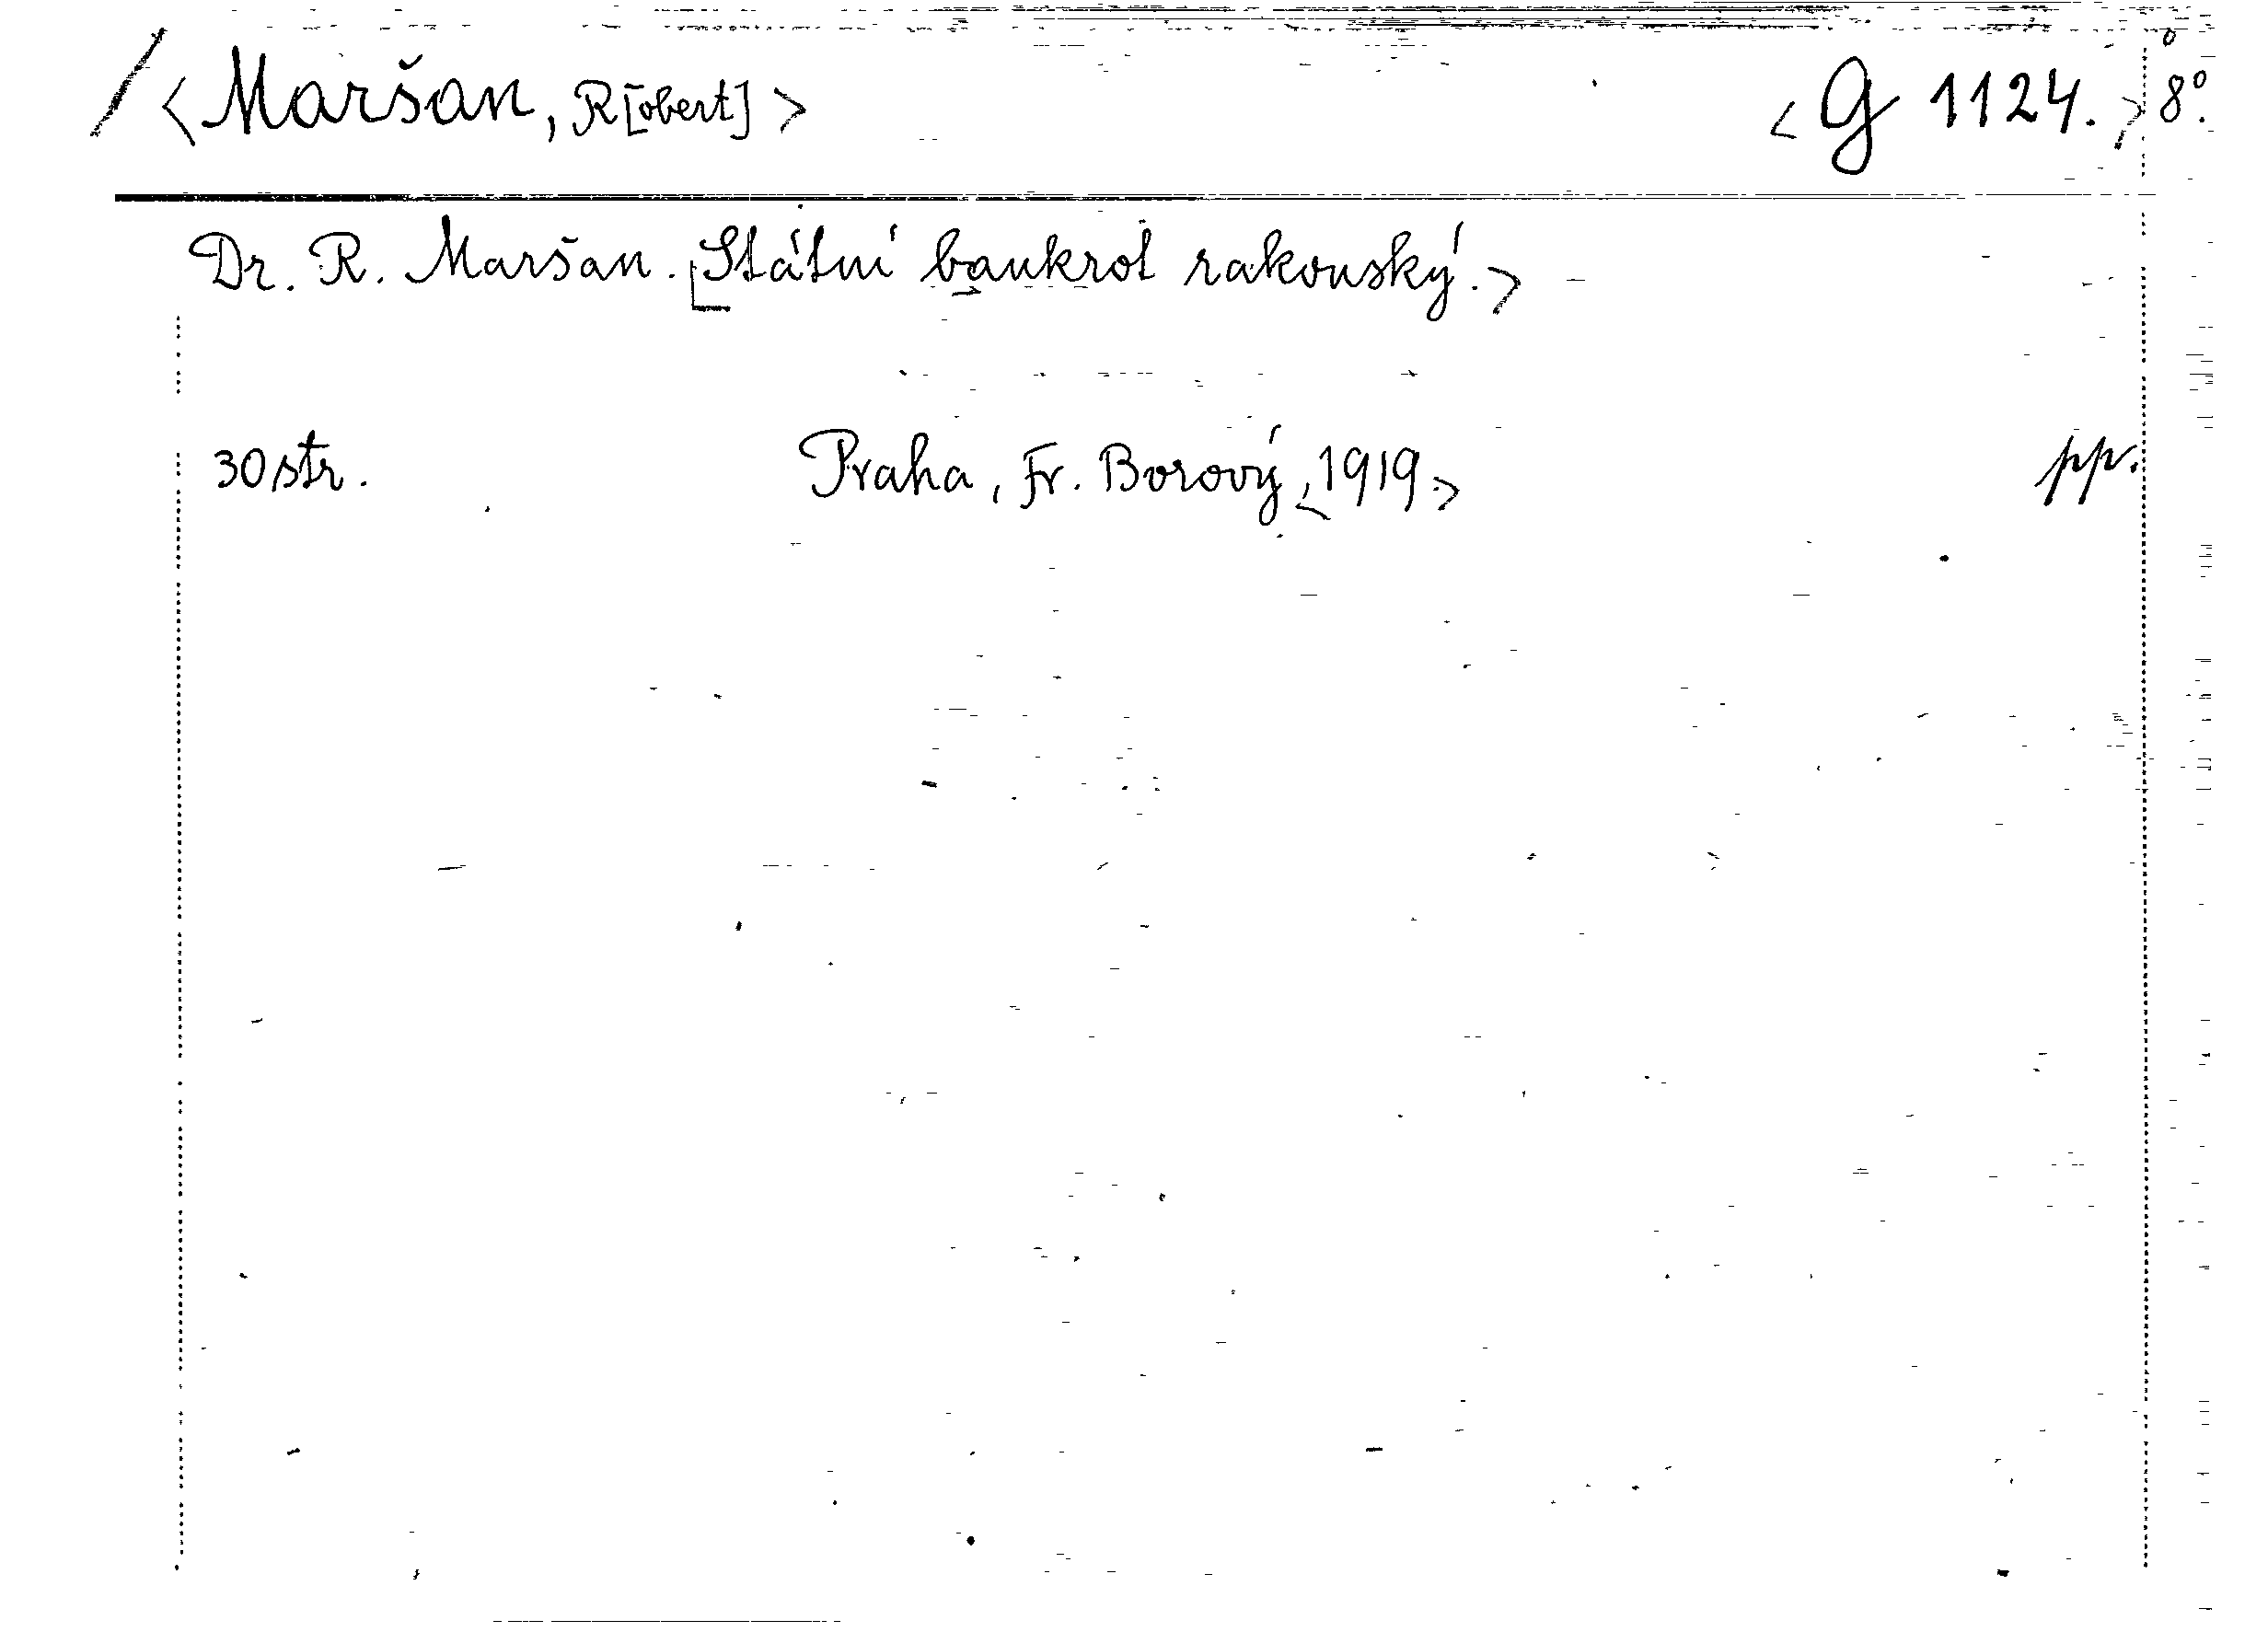 /<Maršan, R[obert]> <G 1124.> 8°.
Dr. R. Maršan. [Státní bankrot rakouský.>
30 str. Praha, Fr. Borový, <1919.> pp.